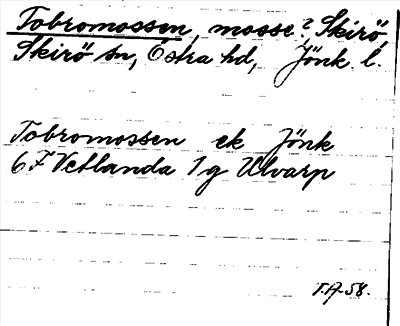 Tobromossen, mosse?, Skirö,
Skirö sn, Östra hd, Jönk. l.
Tobromossen ek Jönk
6F Vetlanda 1g Ulvarp
T.A-58.